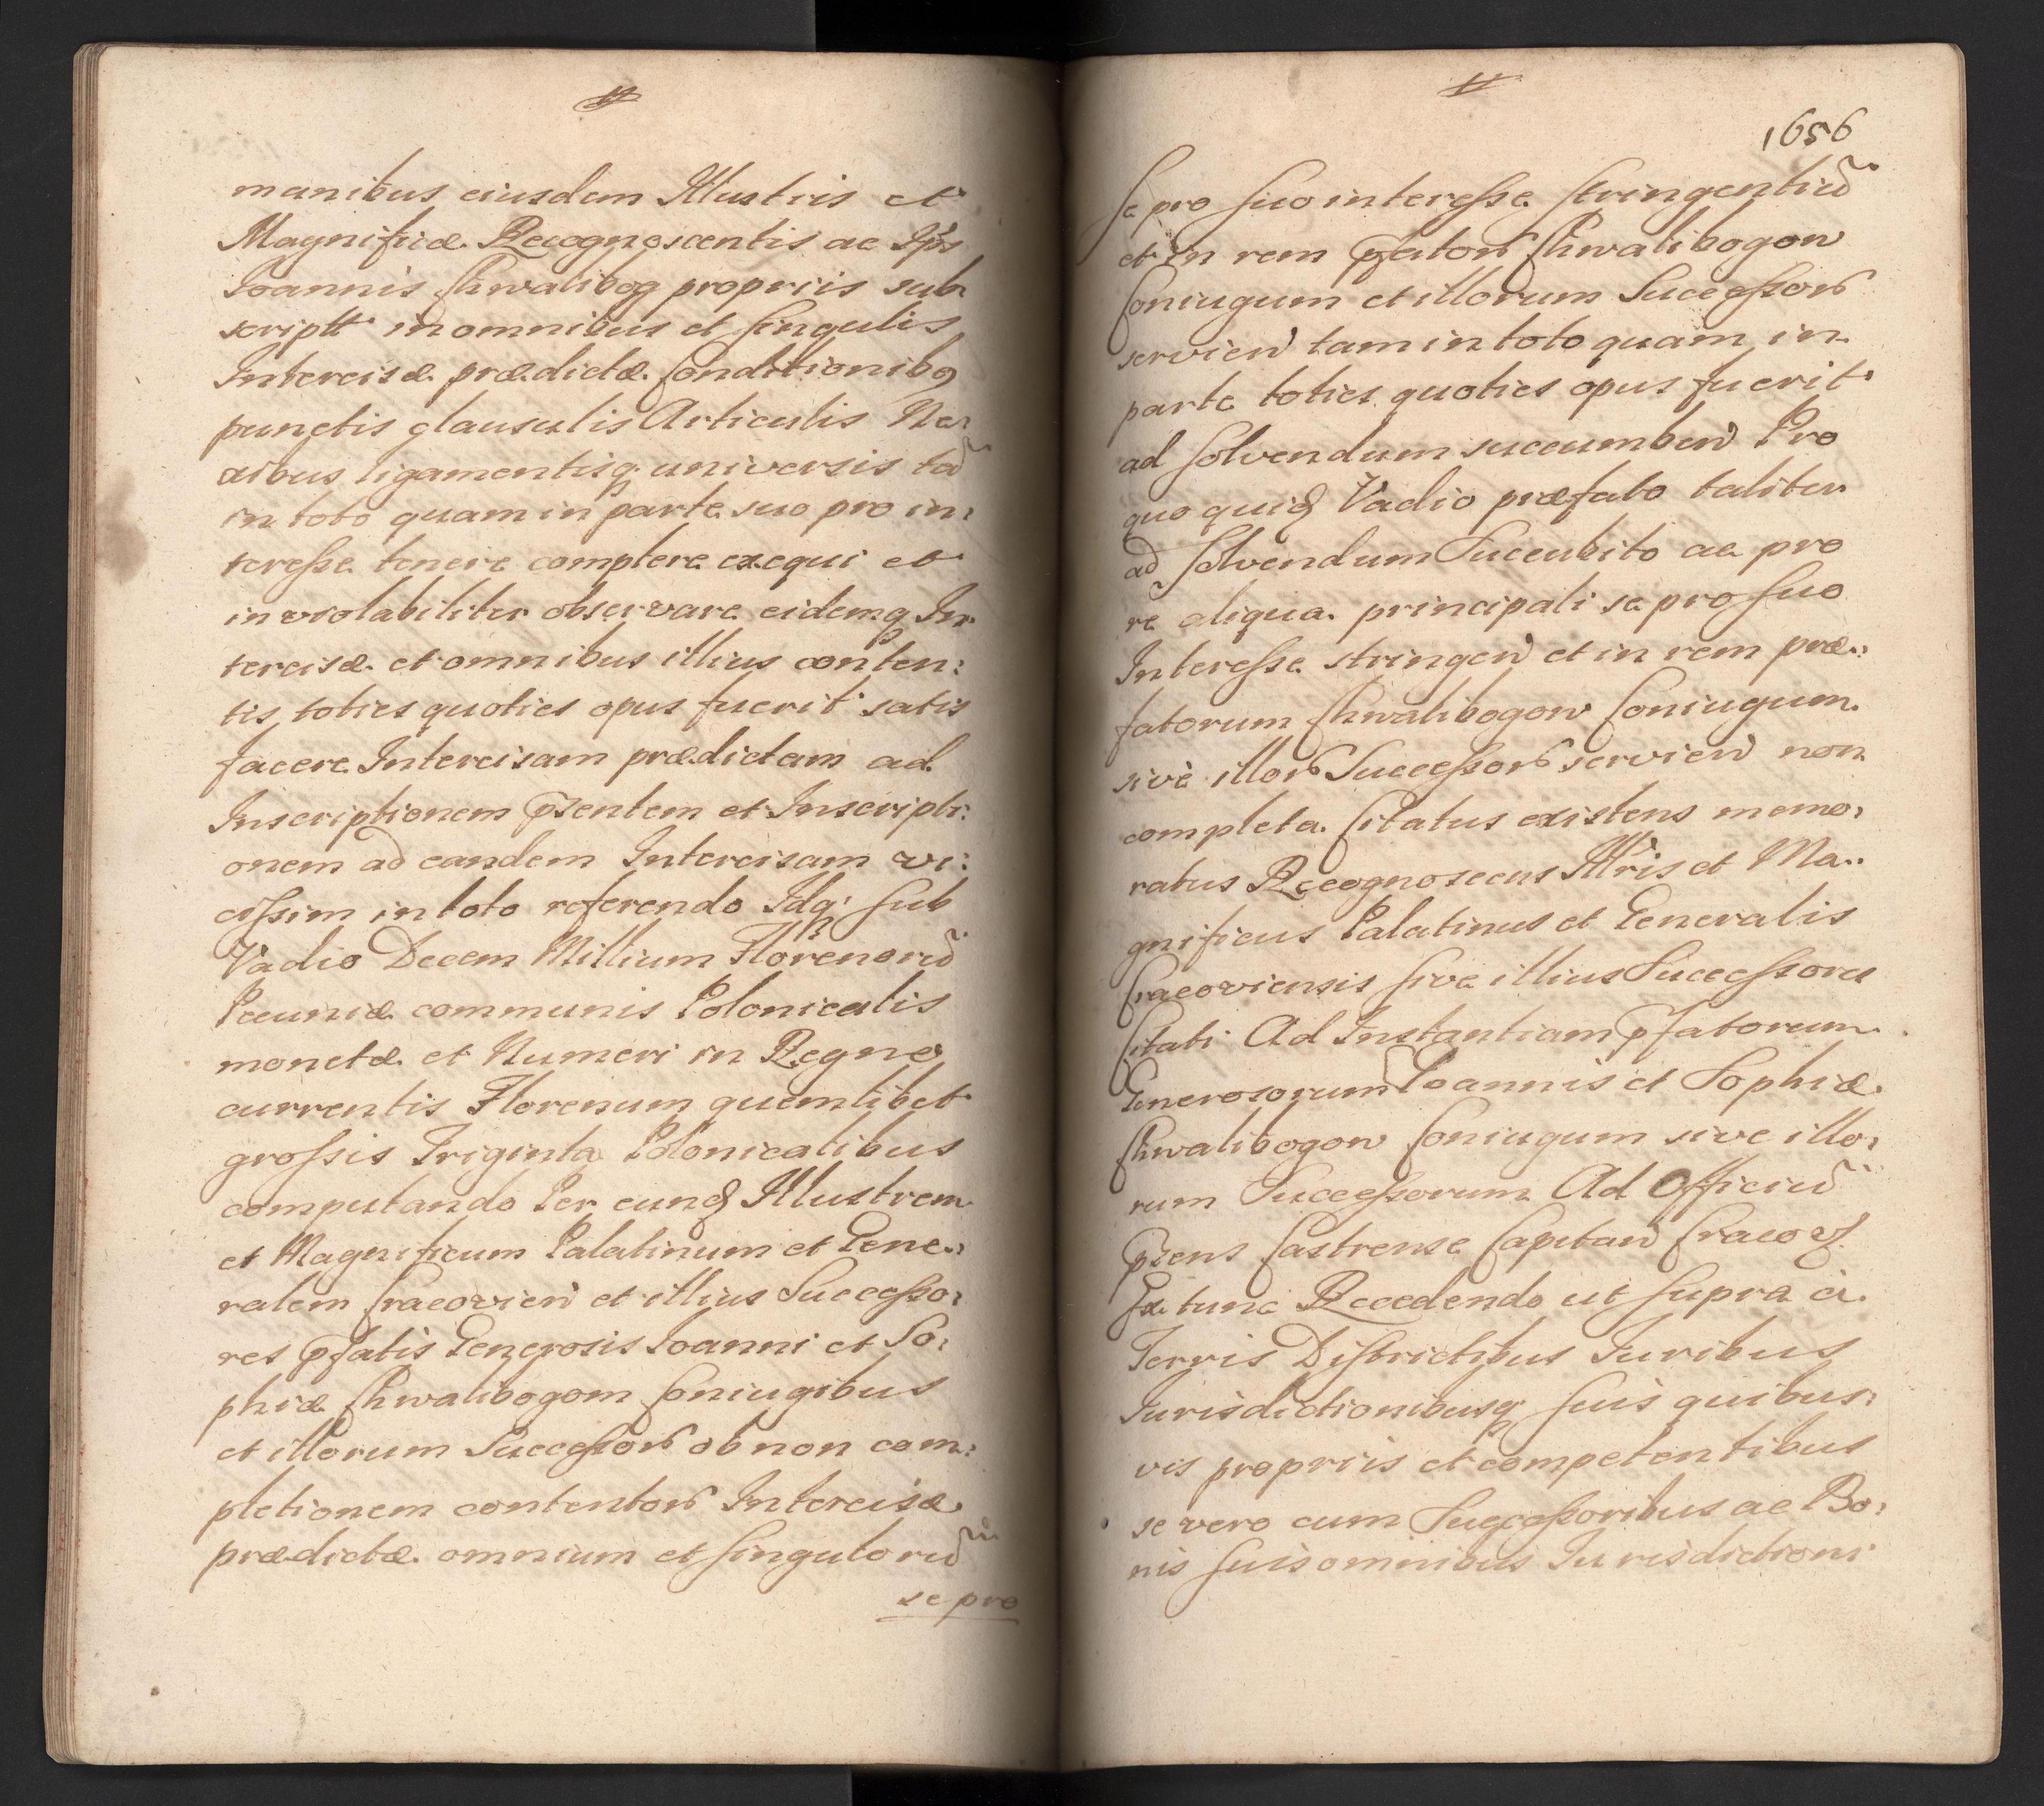 manibus eiusdem Illustris et
Magnificæ Recognoscentis ac Gsi
Ioannis Chwalibog propriis sub
scriptt in omnibus et singulis
Intercisæ prædictæ Conditionibq
punctis clausulis Articulis Ne:
xibus ligamentisq universis tam̃
in toto quam in parte suo pro in:
teresse tenere complere exequi et
inviolabiliter observare eidemq In
tercisæ et omnibus illius conten:
tis toties quoties opus fuerit satis
facere Intercisam prædictam ad
Inscriptionem Psentem et Inscripti:
onem ad eandem Intercisam vi:
cissim in toto referendo Idq; sub
Vadio Decem Millium Florenorũ
Pecuniæ communis Polonicalis
monetæ et Numeri in Regno
currentis Florenum quemlibet
grossis Triginta Polonicalibus
computando Per eund Illustrem
et Magnificum Palatinum et Gene:
ralem Cracovien et illius Successo:
res Pfatis Generosis Ioanni et So:
phiæ Chwalibogom Coniugibus
et illorum Successor ob non com:
pletionem contentor Intercisæ
prædictæ omnium et singulorũ
se pro
1656
se pro suo interesse stringentiũ
et in rem Pfator Chwalibogow
Coniugum et illorum Successor
servien tam in toto quam in
parte toties quoties opus fuerit
ad solvendum succumben Pro
quo quid Vadio præfato taliter
ad solvendum Succubito ac pro
re aliqua principali se pro suo
Interesse stringen et in rem præ:
fatorum Chwalibogow Coniugum
sive illor Successor servien non
completa Citatus existens memo:
ratus Recognoscens Illris et Ma:
gnificus Palatinus et Generalis
Cracoviensis sive illius Successores
Citati Ad Instantiam Pfatorum
Generosorum Ioannis et Sophiæ
Chwalibogow Coniugum sive illo:
rum Successorum Ad Officiũ
Psens Castrense Capitan Cracov
Ex tunc Recedendo ut supra à
Terris Districtibus Iuribus
Iurisdictionibusq suis quibus:
vis propriis et competentibus
se vero cum Successoribus ac Bo:
nis suis omnibus Iurisdictioni